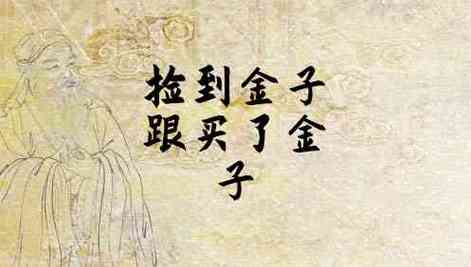 捡到金子
跟买了金
子